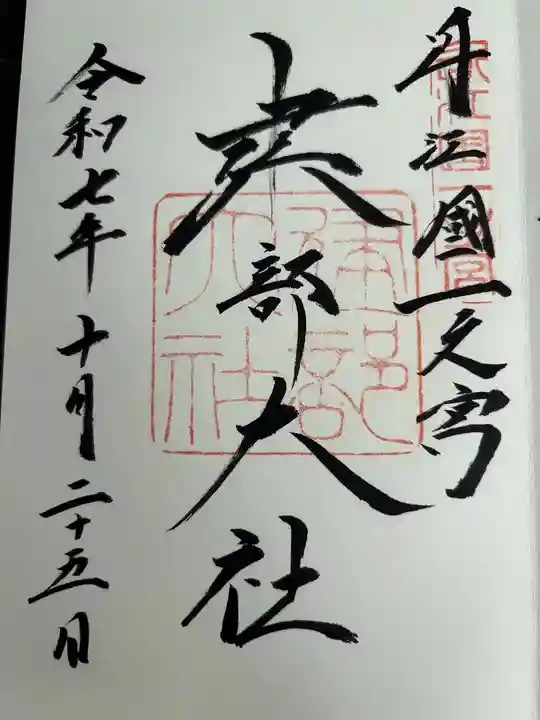 近江國一之宮
建部大社
令和七年十月二十五日
近江國一之宮
建部大社